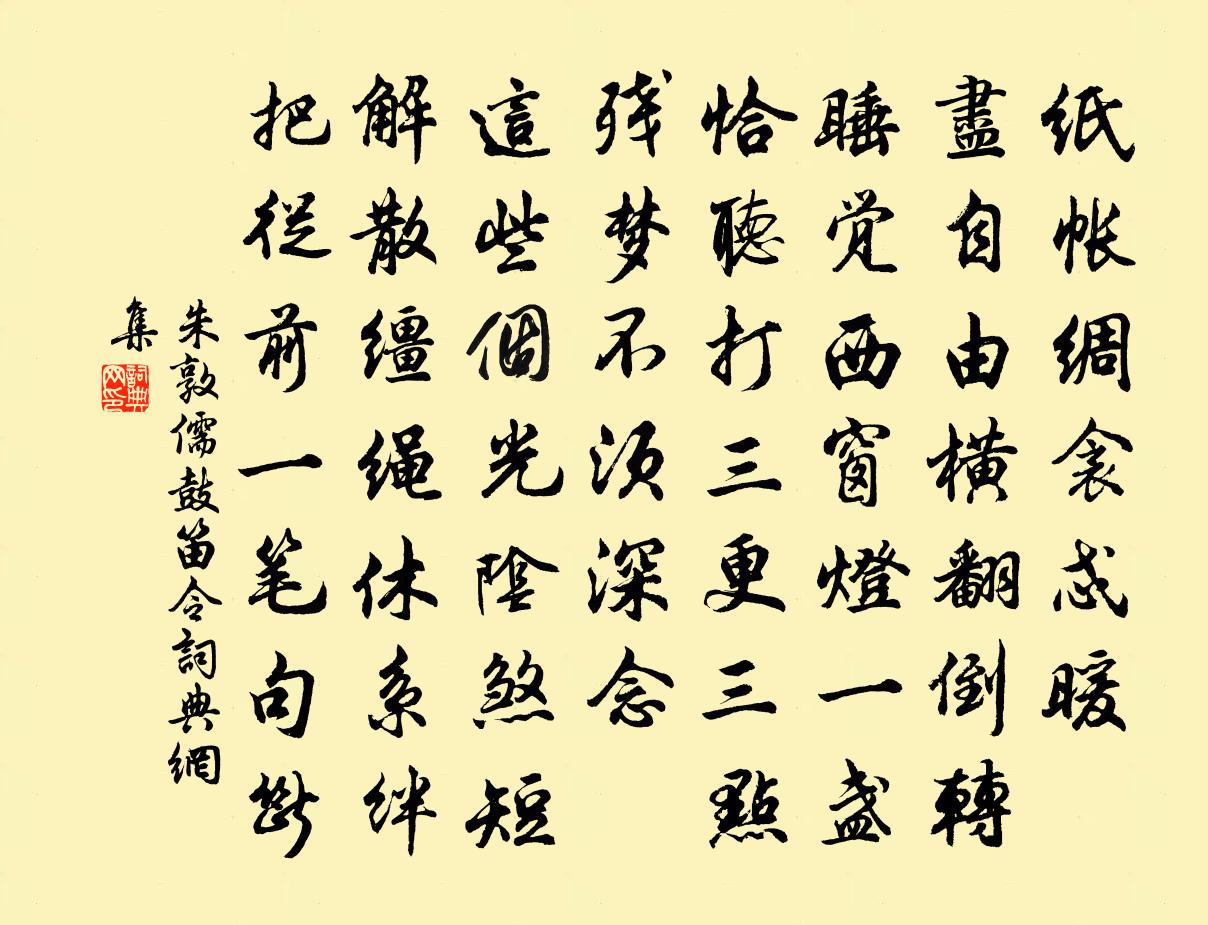 紙帳綢衾忒暖
盡自由横翻倒轉
睡觉西窗燈一盏
恰聽打三更三點
残梦不须深念
這些個光陰煞短
解散缰绳休系绊
把從前一笔句斷
朱敦儒鼓笛令詞典網
集
詞典网印